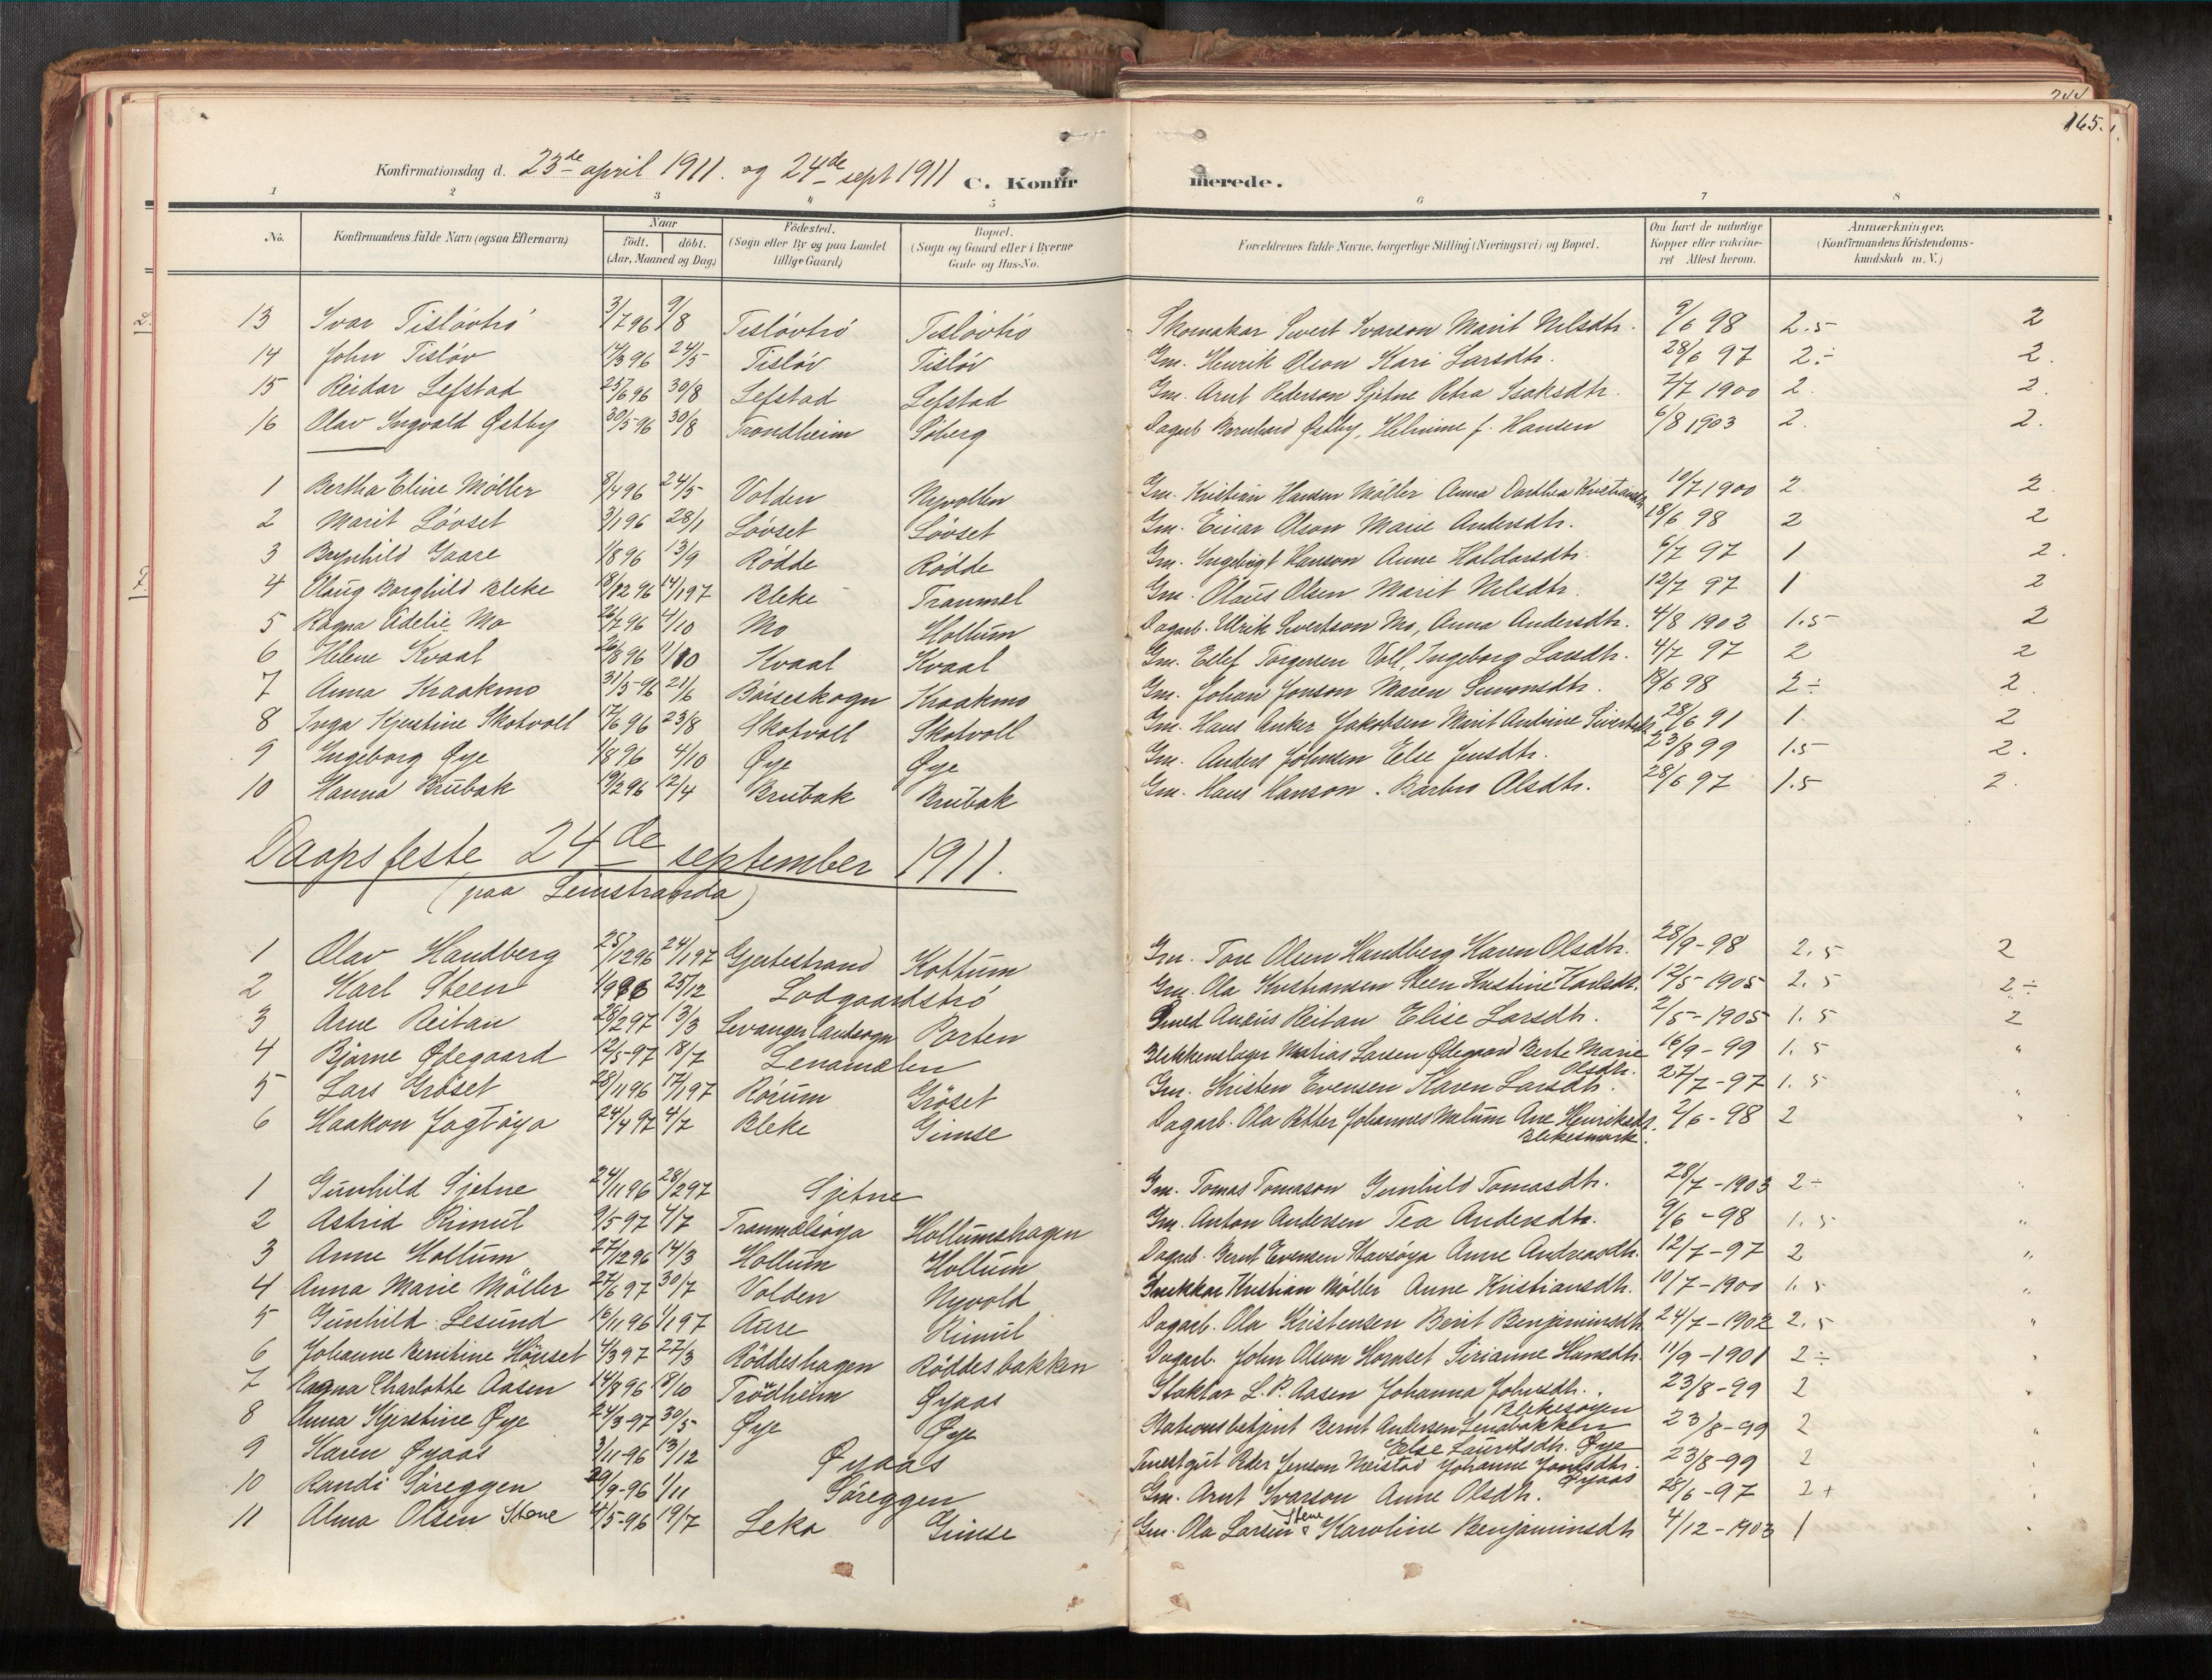 244
165.
Konfirmationsdag d. 23de april 1911. og 24de sept 1911 C. Konfirmerede.
1 2 3 4 5 6 7 8
No. Konfirmandens fulde Navn (ogsaa Efternavn) Naar födt. döbt. (Aar, Maaned og Dag) Födested. (Sogn eller By og paa Landet tillige Gaard) Bopæl. (Sogn og Gaard eller i Byerne Gade og Hus-No. Forældrenes fulde Navne, borgerlige Stilling (Næringsvei) og Bopæl. Om havt de naturlige Kopper eller vaccineret Attest herom. Anmærkninger. (Konfirmandens Kristendomskundskab m. V.)
13 Ivar Tislövtrö 3/7 96 9/8 Tislövtrö Tislövtrö Skomakar Sivert Ivarson Marit Nilsdtr. 9/6 98 2.5 2
14 John Tislöv 14/3 96 24/5 Tislöv Tislöv Gm. Henrik Olson Kari Larsdtr. 28/6 97 2÷ 2.
15 Reidar Lefstad 25/6 96 30/8 Lefstad Lefstad Gm. Arnt Pederson Sjetne Petra Isaksdtr. 7/7 1900 2. 2.
16 Olav Ingvald Østby 30/5-96 30/8 Trondheim Söberg Dagarb Bernhard Østby, Helmine f. Hansen 6/8 1903 2. 2.
1 Bertha Eline Möller 8/4 96 24/5 Volden Nyvollen Gm. Kristian Hansen Möller Anna Dorthea Kristiansdtr 10/7 1900 2 2.
2 Marit Lövset 3/1 96 28/1 Lövset Lövset Gm. Einar Olson Marie Andersdtr. 18/6 98 2 2
3 Brynhild Gaare 1/8 96 13/9 Rödde Rödde Gm. Ingebrigt Hanson Anne Haldorsdtr. 6/7 97 1 2.
4 Olaug Borghild Bleke 18/12 96 14/1 97 Bleke Tranmel Gm. Olaus Olsen Marit Nilsdtr. 12/7 97 1 2
5 Ragna Edelie Mo 26/7 96 4/10 Mo Hollum Dagarb. Ulrik Sivertson Mo, Anna Andersdtr. 4/8 1902 1.5 2
6 Helene Kvaal 26/8 96 11/10 Kvaal Kvaal Gm. Ellef Torgersen Voll, Ingeborg Larsdtr. 4/7 97 2 2
7 Anna Kraakmo 31/5-96 21/6 Börseskogn Kraakmo Gm. Johan Jonson Maren Simonsdtr. 18/6 98 2÷ 2.
8 Inga Kjerstine Skotvoll 17/6 96 23/8 Skotvoll Skotvoll Gm. Hans Anker Jakobsen Marit Antine Sivertsdtr 28/6 91 1 2
9 Ingeborg Øye 1/8 96 4/10 Øye Øye Gm. Anders Johnsen Else Jensdtr. 23/8 99 1.5 2.
10 Hanna Brubak 19/2 96 12/4 Brubak Brubak Gm. Hans Hanson. Barbro Olsdtr. 28/6 97 1.5 2.
Daapsfeste 24de september 1911.
(paa Leinstranda)
1 Olav Handberg 25/12 96 24/1 97 Gjestestrand Kottum Gm. Tore Olsen Handberg Karen Olsdtr. 28/9-98 2.5 2
2 Karl Steen 4/9 96 25/12 Lodgaardströ Gm. Ola Kristiansen Steen Kristine Karlsdtr. 12/5-1905 2.5 2÷
3 Arne Reitan 28/2 97 13/3 Levanger landsogn Porten Smed Anæus Reitan Elise Larsdtr. 2/5-1905 1.5 2
4 Bjarne Ødegaard 12/5-97 18/7 Lenamælen Blikkenslager Matias Larsen Ødegaard Berte Marie Olsdtr. 16/9-99 1.5 "
5 Lars Gröset 28/11 96 17/1 97 Rörum Gröset Gm. Kristen Evensen Karen Larsdtr. 27/7-97 1.5 "
6 Haakon Jagtöya 24/4 97 4/7 Bleke Gimse Dagarb. Ola Petter Johannes Melum Ane Henriksdtr. Blekesmark 2/6-98 2 "
1 Gunhild Sjetne 24/11 96 28/2 97 Sjetne Gm. Tomas Tomason Gunhild Tomasdtr. 28/7-1903 2÷ "
2 Astrid Rimul 9/5 97 4/7 Tranmælsöya Hollumshagen Gm. Anton Andersen Tea Andersdtr. 9/6-98 1.5 "
3 Anne Hollum 27/12 96 14/3 Hollum Hollum Dagarb. Bernt Evensen Stavsöya Anne Andreasdtr. 12/7-97 2 "
4 Anna Marie Möller 27/6 97 30/7 Volden Nyvold Snekkar Kristian Möller Anne Kristiansdtr. 10/7-1900 1.5 "
5 Gunhild Lesund 16/11 96 1/1 97 Aure Rimul Dagarb. Ola Kristensen Berit Benjaminsdtr. 24/7-1902 2.5 "
6 Johanne Berntine Hönset 4/3 97 27/3 Röddeshagen Röddesbakken Dagarb. John Olson Hornset Sirianne Hansdtr. 11/9-1901 2÷ "
7 Ragna Charlotte Aasen 14/8 96 18/10 Trödheim Øyaas Slaktar L. P. Aasen Johanna Johnsdtr. Blekesöyen 23/8-99 2 "
8 Anna Kjerstine Øye 24/3-97 30/5 Øye Øye Stationsbetjent Bernt Andersen Lenabakken Else Lauritsdtr. Øye 23/8-99 2 "
9 Karen Øyaas 3/11-96 13/12 Øyaas Tunestgut Peder Jenson Neistad Johanne Jonsdtr. Øyaas 23/8-99 2
10 Randi Söreggen 29/9-96 1/11 Söreggen Gm. Arnt Ivarson Anne Olsdtr. 28/6-97 2+ "
11 Alma Olsen Stene 4/5-96 19/7 Leka Gimse Gm. Ola Larsen Stene & Karoline Benjaminsdtr 4/12-1903 1 "